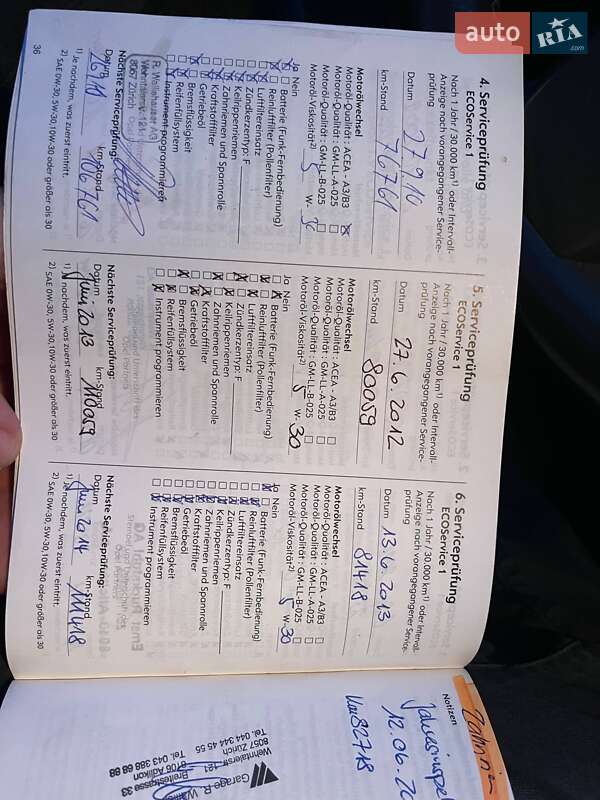 auto RIA .com
36
4. Serviceprüfung
ECOService 1
Nach 1 Jahr / 30.000 km¹⁾ oder Intervall-
Anzeige nach vorangegangener Service-
prüfung
Datum 27.9.10
km-Stand 76761
Motorölwechsel
Motoröl-Qualität : ACEA - A3/B3
Motoröl-Qualität : GM-LL-A-025
Motoröl-Qualität : GM-LL-B-025
Motoröl-Viskosität²⁾ 5 W- 30
Ja Nein
Batterie (Funk-Fernbedienung)
Reinluftfilter (Pollenfilter)
Luftfiltereinsatz
Zündkerzentyp: F
Keilrippenriemen
Zahnriemen und Spannrolle
Kraftstofffilter
Getriebeöl
Bremsflüssigkeit
Reifenfüllsystem
Instrument programmieren
8057 Zürich
Nächste Serviceprüfung:
Datum km-Stand
106761
1) Je nachdem, was zuerst eintritt.
2) SAE 0W-30, 5W-30, 10W-30 oder größer als 30
5. Serviceprüfung
ECOService 1
Nach 1 Jahr / 30.000 km¹⁾ oder Intervall-
Anzeige nach vorangegangener Service-
prüfung
Datum 27.6.2012
km-Stand 80059
Motorölwechsel
Motoröl-Qualität : ACEA - A3/B3
Motoröl-Qualität : GM-LL-A-025
Motoröl-Qualität : GM-LL-B-025
Motoröl-Viskosität²⁾ 5 W- 30
Ja Nein
Batterie (Funk-Fernbedienung)
Reinluftfilter (Pollenfilter)
Luftfiltereinsatz
Zündkerzentyp: F
Keilrippenriemen
Zahnriemen und Spannrolle
Kraftstofffilter
Getriebeöl
Bremsflüssigkeit
Reifenfüllsystem
Instrument programmieren
Nächste Serviceprüfung:
Datum km-Stand
Juni 2013 110059
1) Je nachdem, was zuerst eintritt.
2) SAE 0W-30, 5W-30, 10W-30 oder größer als 30
6. Serviceprüfung
ECOService 1
Nach 1 Jahr / 30.000 km¹⁾ oder Intervall-
Anzeige nach vorangegangener Service-
prüfung
Datum 13.6.2013
km-Stand 81418
Motorölwechsel
Motoröl-Qualität : ACEA - A3/B3
Motoröl-Qualität : GM-LL-A-025
Motoröl-Qualität : GM-LL-B-025
Motoröl-Viskosität²⁾ 5 W- 30
Ja Nein
Batterie (Funk-Fernbedienung)
Reinluftfilter (Pollenfilter)
Luftfiltereinsatz
Zündkerzentyp: F
Keilrippenriemen
Zahnriemen und Spannrolle
Kraftstofffilter
Getriebeöl
Bremsflüssigkeit
Reifenfüllsystem
Instrument programmieren
Nächste Serviceprüfung:
Datum km-Stand
Juni 2014 111418
1) Je nachdem, was zuerst eintritt.
2) SAE 0W-30, 5W-30, 10W-30 oder größer als 30
Notizen
12.06.20
82718
Garage R.
Wehntalerstr. 121
8057 Zürich
Tel. 044 344 45 55
Breitestrasse 33
8106 Adlikon
Tel. 043 388 68 88